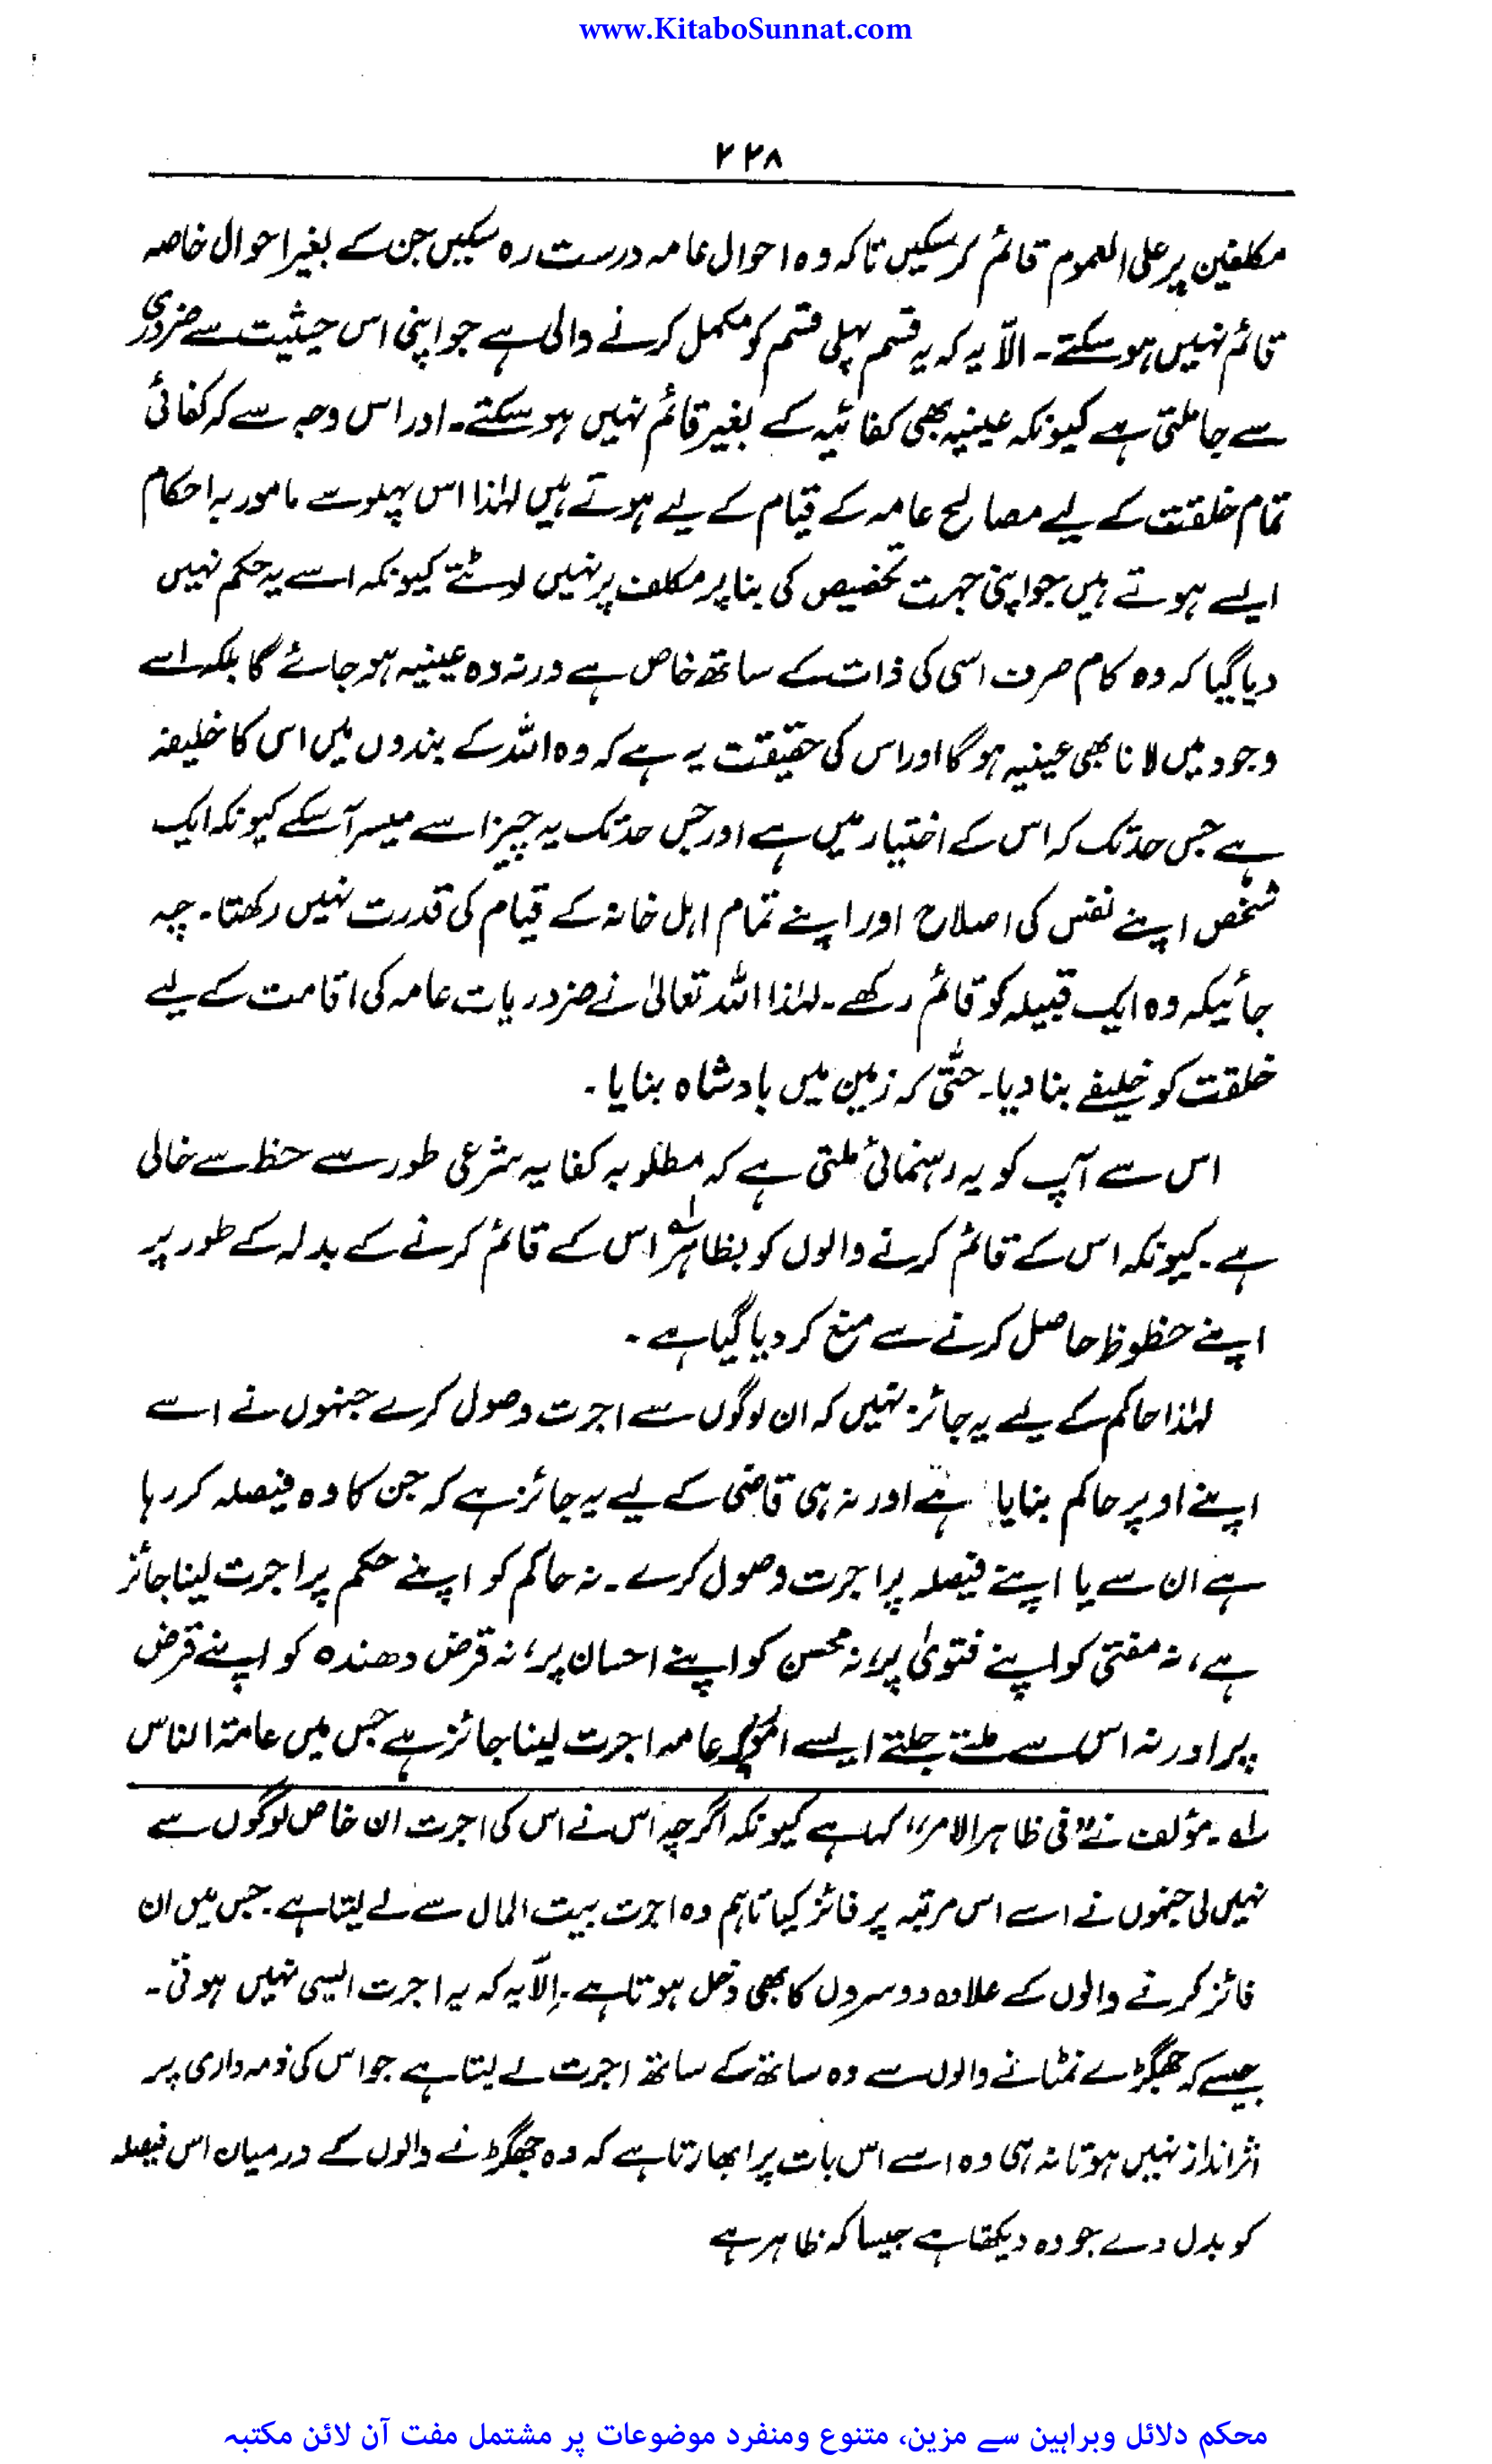 www.KitaboSunnat.com
۲۲۸
مکلفین پر علی العموم قائم کر سکیں تاکہ وہ احوال عامہ درست رہ سکیں جن کے بغیر احوال خاصہ
قائم نہیں ہو سکتے۔ الّا یہ کہ یہ قسم پہلی قسم کو مکمل کرنے والی ہے جو اپنی اس حیثیت سے ضروری
سے جا ملتی ہے کیونکہ عینیہ بھی کفائیہ کے بغیر قائم نہیں ہو سکتے۔ اور اس وجہ سے کہ کفائی
تمام خلقت کے لیے مصالح عامہ کے قیام کے لیے ہوتے ہیں لہٰذا اس پہلو سے مامور بہ احکام
ایسے ہوتے ہیں جو اپنی جہت تخصیص کی بنا پر مکلف پر نہیں لوٹتے کیونکہ اسے یہ حکم نہیں
دیا گیا کہ وہ کام صرف اسی کی ذات کے ساتھ خاص ہے ورنہ وہ عینیہ ہو جائے گا بلکہ اسے
وجود میں لانا بھی عینیہ ہوگا اور اس کی حقیقت یہ ہے کہ وہ اللہ کے بندوں میں اس کا خلیفہ
ہے جس حد تک کہ اس کے اختیار میں ہے اور جس حد تک یہ چیز اسے میسر آسکے کیونکہ ایک
شخص اپنے نفس کی اصلاح اور اپنے تمام اہل خانہ کے قیام کی قدرت نہیں رکھتا۔ چہ
جائیکہ وہ ایک قبیلہ کو قائم رکھے۔ لہٰذا اللہ تعالیٰ نے ضروریات عامہ کی اقامت کے لیے
خلقت کو خلیفے بنا دیا۔ حتّٰی کہ زمین میں بادشاہ بنایا۔
اس سے آپ کو یہ رہنمائی ملتی ہے کہ مطلوبہ کفایہ شرعی طور سے حظ سے خالی
ہے۔ کیونکہ اس کے قائم کرنے والوں کو بظاہر لہ اس کے قائم کرنے کے بدلہ کے طور پر
اپنے حظوظ حاصل کرنے سے منع کر دیا گیا ہے۔
لہٰذا حاکم کے لیے یہ جائز نہیں کہ ان لوگوں سے اجرت وصول کرے جنہوں نے اسے
اپنے اوپر حاکم بنایا ہے اور نہ ہی قاضی کے لیے یہ جائز ہے کہ جن کا وہ فیصلہ کر رہا
ہے ان سے یا اپنے فیصلہ پر اجرت وصول کرے۔ نہ حاکم کو اپنے حکم پر اجرت لینا جائز
ہے، نہ مفتی کو اپنے فتویٰ پر، نہ محسن کو اپنے احسان پر، نہ قرض دھندہ کو اپنے قرض
پر اور نہ اس سے ملتے جلتے ایسے امور عامہ اجرت لینا جائز ہے جس میں عامۃ الناس
لہ۔ مؤلف نے ’’فی ظاہر الامر‘‘ کہا ہے کیونکہ اگرچہ اس نے اس کی اجرت ان خاص لوگوں سے
نہیں لی جنہوں نے اسے اس مرتبہ پر فائز کیا تاہم وہ اجرت بیت المال سے لے لیتا ہے۔ جس میں ان
فائز کرنے والوں کے علاوہ دوسروں کا بھی دخل ہوتا ہے۔ اِلّا یہ کہ یہ اجرت ایسی نہیں ہوتی۔
جیسے کہ جھگڑے نمٹانے والوں سے وہ ساتھ کے ساتھ اجرت لے لیتا ہے جو اس کی ذمہ داری پر
اثر انداز نہیں ہوتا نہ ہی وہ اسے اس بات پر ابھارتا ہے کہ وہ جھگڑنے والوں کے درمیان اس فیصلہ
کو بدل دے جو وہ دیکھتا ہے جیسا کہ ظاہر ہے
محکم دلائل وبراہین سے مزین، متنوع ومنفرد موضوعات پر مشتمل مفت آن لائن مکتبہ